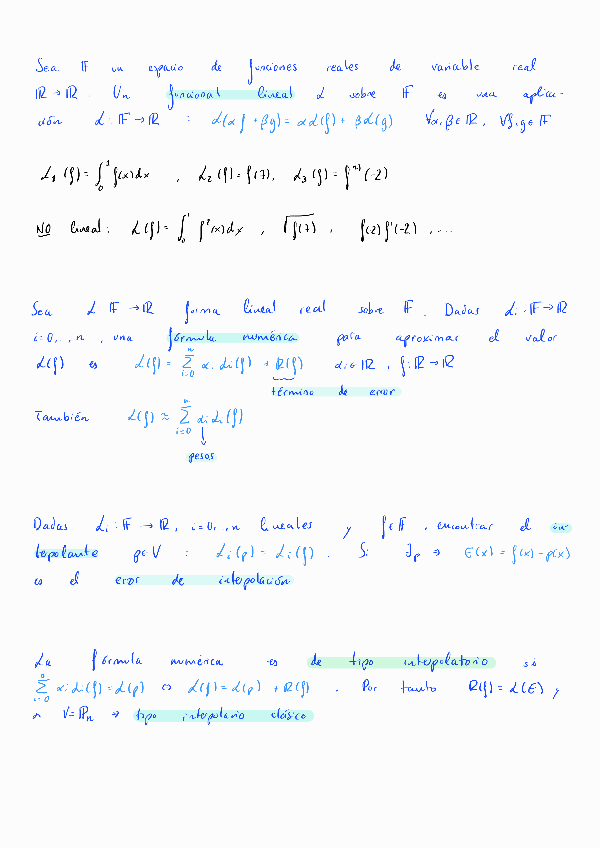 Sea 𝔽 un espacio de funciones reales de variable real
ℝ→ℝ. Un funcional lineal ℒ sobre 𝔽 es una aplica-
ción ℒ: 𝔽→ℝ : ℒ(αf + βg) = αℒ(f) + βℒ(g) ∀α, β ∈ ℝ, ∀f, g ∈ 𝔽
ℒ₁(f) = ∫₀¹ f(x)dx , ℒ₂(f) = f(7), ℒ₃(f) = f''(-2)
NO lineal: ℒ(f) = ∫₀¹ f²(x)dx , √f(7) , f(2)f'(-2) , ...
Sea ℒ 𝔽→ℝ forma lineal real sobre 𝔽. Dadas ℒᵢ: 𝔽→ℝ
i=0, , n , una fórmula numérica para aproximar el valor
ℒ(f) es ℒ(f) = Σᵢ₌₀ⁿ αᵢ ℒᵢ(f) + R(f) αᵢ ∈ ℝ , f: ℝ→ℝ
término de error
También ℒ(f) ≈ Σᵢ₌₀ⁿ αᵢ ℒᵢ(f)
↓
pesos
Dadas ℒᵢ: 𝔽→ℝ, i=0, , n lineales y f ∈ 𝔽, encontrar el in-
terpolante p ∈ V : ℒᵢ(p) = ℒᵢ(f) . Si ∃p → E(x) = f(x) - p(x)
es el error de interpolación
La fórmula numérica es de tipo interpolatorio si
Σᵢ₌₀ⁿ αᵢ ℒᵢ(f) = ℒ(p) ⇔ ℒ(f) = ℒ(p) + R(f) . Por tanto R(f) = ℒ(E) y
si V = ℙₙ → tipo interpolario clásico